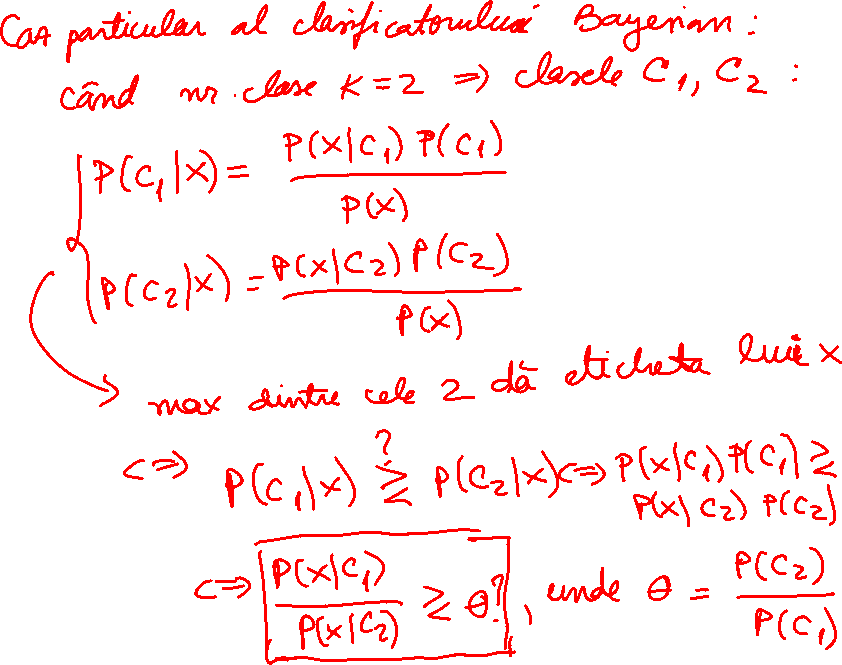 Caz particular al clasificatorului Bayesian:
când nr. clase K=2 => clasele C₁, C₂ :
P(C₁|x) = P(x|C₁) P(C₁) / P(x)
P(C₂|x) = P(x|C₂) P(C₂) / P(x)
max dintre cele 2 dă eticheta lui x
<=> P(C₁|x) ≷? P(C₂|x) <=> P(x|C₁) P(C₁) ≷
P(x|C₂) P(C₂)
<=> P(x|C₁) / P(x|C₂) ≷ θ?, unde θ = P(C₂) / P(C₁)